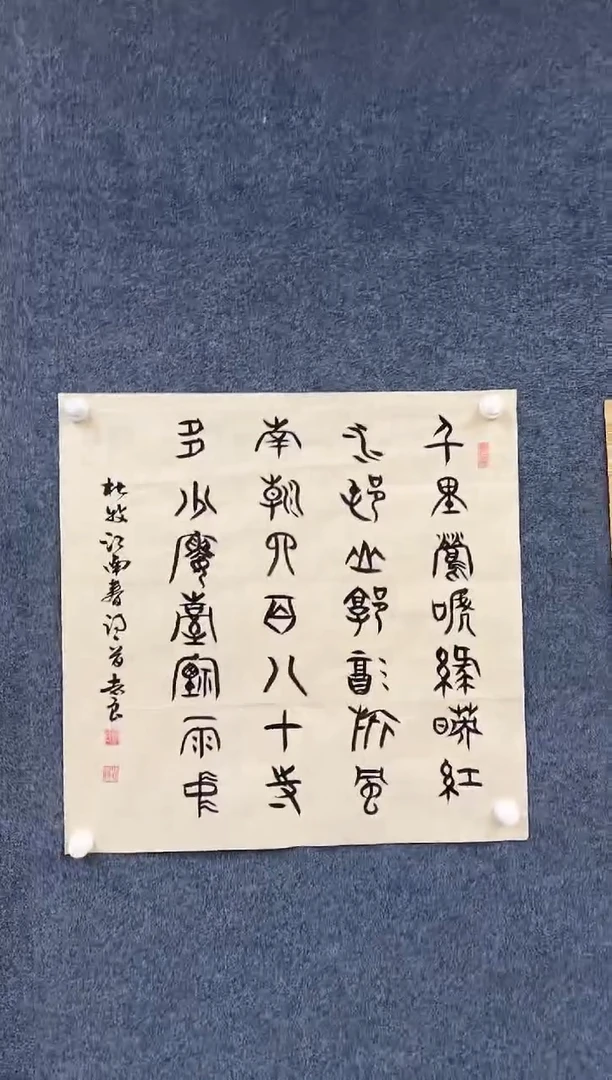 千里鶯嗁綠暎紅
水邨山郭酒旂風
南朝四百八十寺
多少樓臺煙雨中
杜牧江南春詩首良